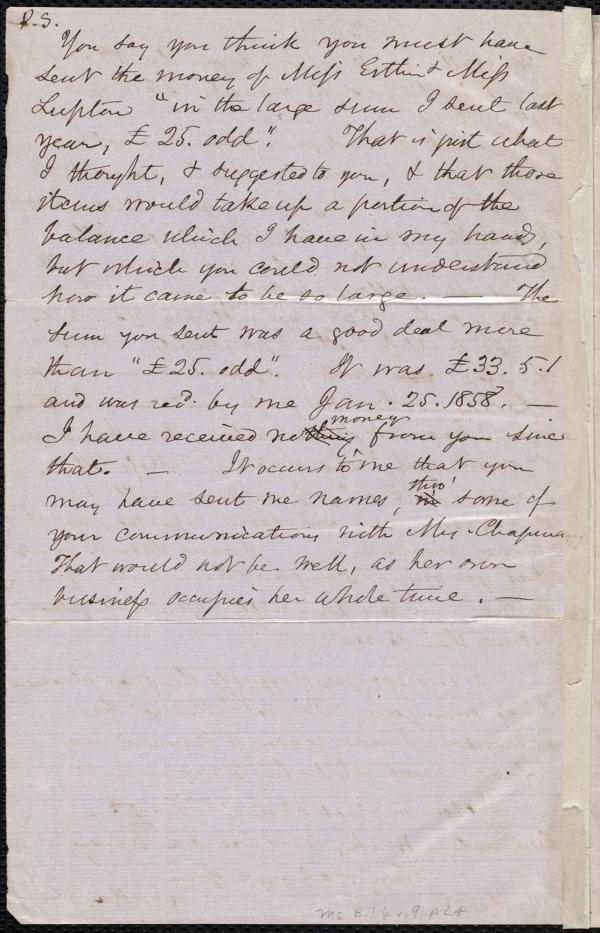 P.S.
You say you think you must have
sent the money of Miss Estlin & Miss
Lupton "in the large sum I sent last
year, £25. odd". That is just what
I thought, & suggested to you, & that those
items would take up a portion of the
balance which I have in my hands,
but which you could not understand
how it came to be so large. — The
sum you sent was a good deal more
than "£25. odd". It was £33. 5.1
and was recd. by me Jan. 25. 1858. —
money
I have received nothing from you since
that. — It occurs to me that you
thro'
may have sent me names, in some of
your communications with Mrs. Chapman
That would not be well, as her own
business occupies her whole time. —
Ms. B.1.6 v.9. p.24